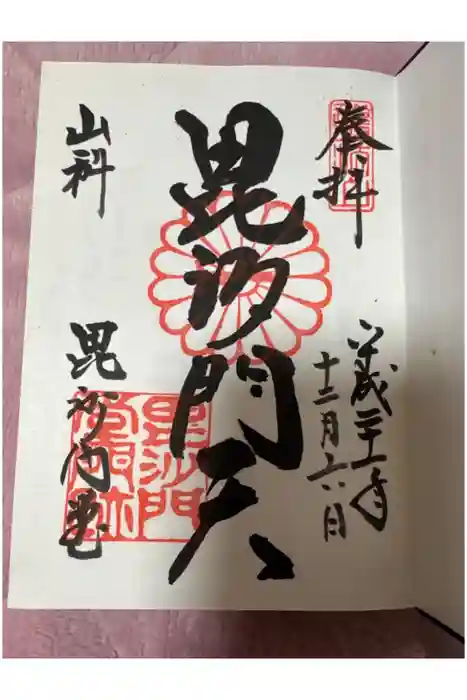 奉拝
平成二十一年
十二月六日
毘沙門天
山科
毘沙門堂
毘沙門
堂門跡